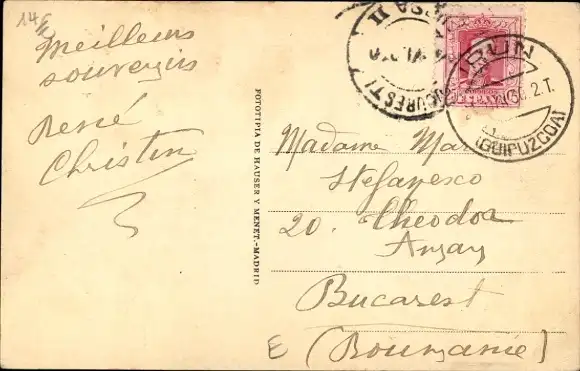 14
Meilleurs
souvenirs
René
Christin
FOTOTIPIA DE HAUSER Y MENET.-MADRID
BUCUREȘTI
IRUN
2.T.
(GUIPUZCOA)
Madame
Stefanesco
20. Theodor
Aman
Bucarest
E (Roumanie)